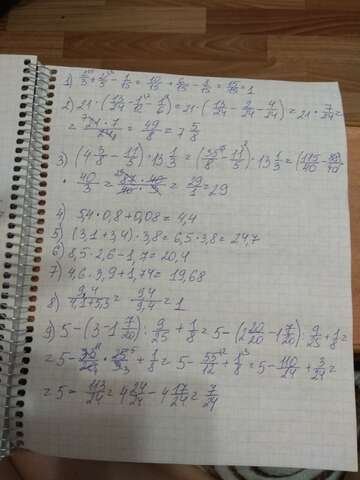 1) 2/3 + 2/5 - 1/15 = 10/15 + 6/15 - 1/15 = 15/15 = 1
2) 21 · (13/24 - 1/12 - 1/6) = 21 · (13/24 - 2/24 - 4/24) = 21 · 7/24 =
= 21 · 7 / 24 = 49/8 = 7 5/8
3) (4 3/8 - 11/5) · 13 1/3 = (35/8 - 11/5) · 13 1/3 = (175/40 - 88/40) ·
· 40/3 = 87 · 40 / 40 · 3 = 29/1 = 29
4) 54 · 0,8 + 0,08 = 4,4
5) (3,1 + 3,4) · 3,8 = 6,5 · 3,8 = 24,7
6) 8,5 · 2,6 - 1,7 = 20,4
7) 4,6 · 3,9 + 1,74 = 19,68
8) 9,4 / 4,1+5,3 = 9,4 / 9,4 = 1
9) 5 - (3 - 1 7/20) : 9/25 + 1/8 = 5 - (2 20/20 - 1 7/20) : 9/25 + 1/8 =
= 5 - 55/12 + 1/8 = 5 - 110/24 + 3/24 =
= 5 - 113/24 = 4 24/24 - 4 17/24 = 7/24